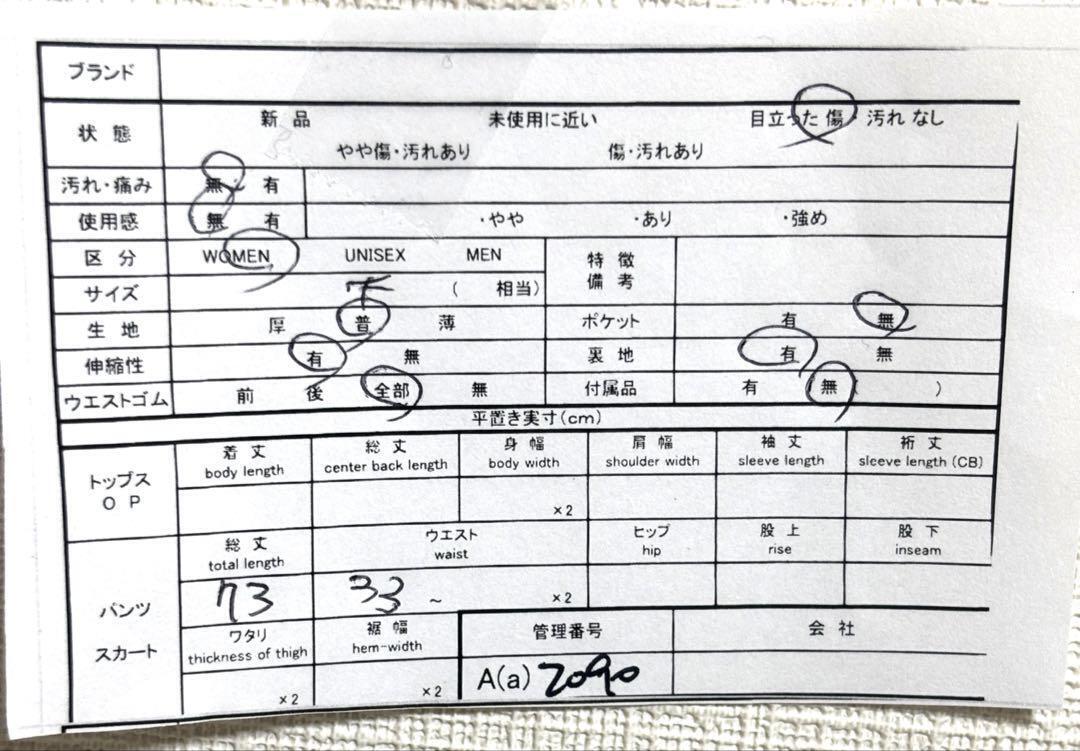 ブランド
状 態 新 品 未使用に近い 目立った 傷・汚れ なし
やや傷・汚れあり 傷・汚れあり
汚れ・痛み 無・有
使用感 無 有 ・やや ・あり ・強め
区 分 WOMEN UNISEX MEN 特 徴
備 考
サイズ ( 相当)
生 地 厚 普 薄 ポケット 有 無
伸縮性 有 無 裏 地 有 無
ウエストゴム 前 後 全部 無 付属品 有 無 ( )
平置き実寸(cm)
トップス
O P
着 丈 総 丈 身 幅 肩 幅 袖 丈 裄 丈
body length center back length body width shoulder width sleeve length sleeve length (CB)
×2
パンツ
スカート
総 丈 ウエスト ヒップ 股 上 股 下
total length waist hip rise inseam
73 33 ~ ×2
ワタリ 裾 幅 管理番号 会 社
thickness of thigh hem-width
×2 ×2 A(a) 2090